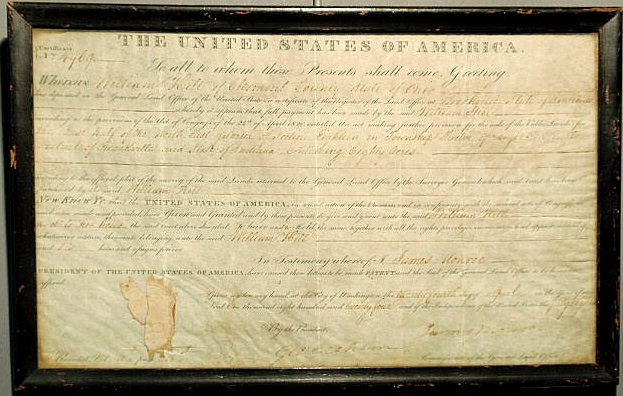 THE UNITED STATES OF AMERICA.
Certificate
To all to whom these Presents shall come, Greeting
WHEREAS William Hill of Clermont County State of Ohio
deposited in the General Land Office of the United States, a certificate of the Register of the Land Office at Brookville State of Indiana
whereby it appears that full payment has been made by the said William Hill
according to the provisions of the Act of Congress of the 24th of April 1820, entitled "An act making further provision for the sale of the Public Lands," for
the East half of the North East quarter of Section in Township
District of Brookville and State of Indiana Containing Eighty Acres
according to the official plat of the survey of the said Lands returned to the General Land Office by the Surveyor General, which said tract has been
purchased by the said William Hill
NOW KNOW YE that the UNITED STATES OF AMERICA, in consideration of the Premises, and in conformity with the several acts of Congress
in such case made and provided, have Given and Granted and by these presents do give and grant unto the said William Hill
and to his heirs, the said tract above described: To have and to Hold the same, together with all the rights, privileges, immunities and appurtenances of
whatsoever nature, thereunto belonging unto the said William Hill
and his heirs and assigns forever.
In Testimony whereof I James Monroe
PRESIDENT OF THE UNITED STATES OF AMERICA, have caused these letters to be made PATENT, and the Seal of the General Land Office to be hereunto
affixed.
Given under my hand at the City of Washington, the twenty fourth day of April in the year of our
Lord One thousand eight hundred and twenty four and of the Independence of the United States the forty eighth
By the President, James Monroe
Commissioner of the General Land Office
Recorded, Vol.